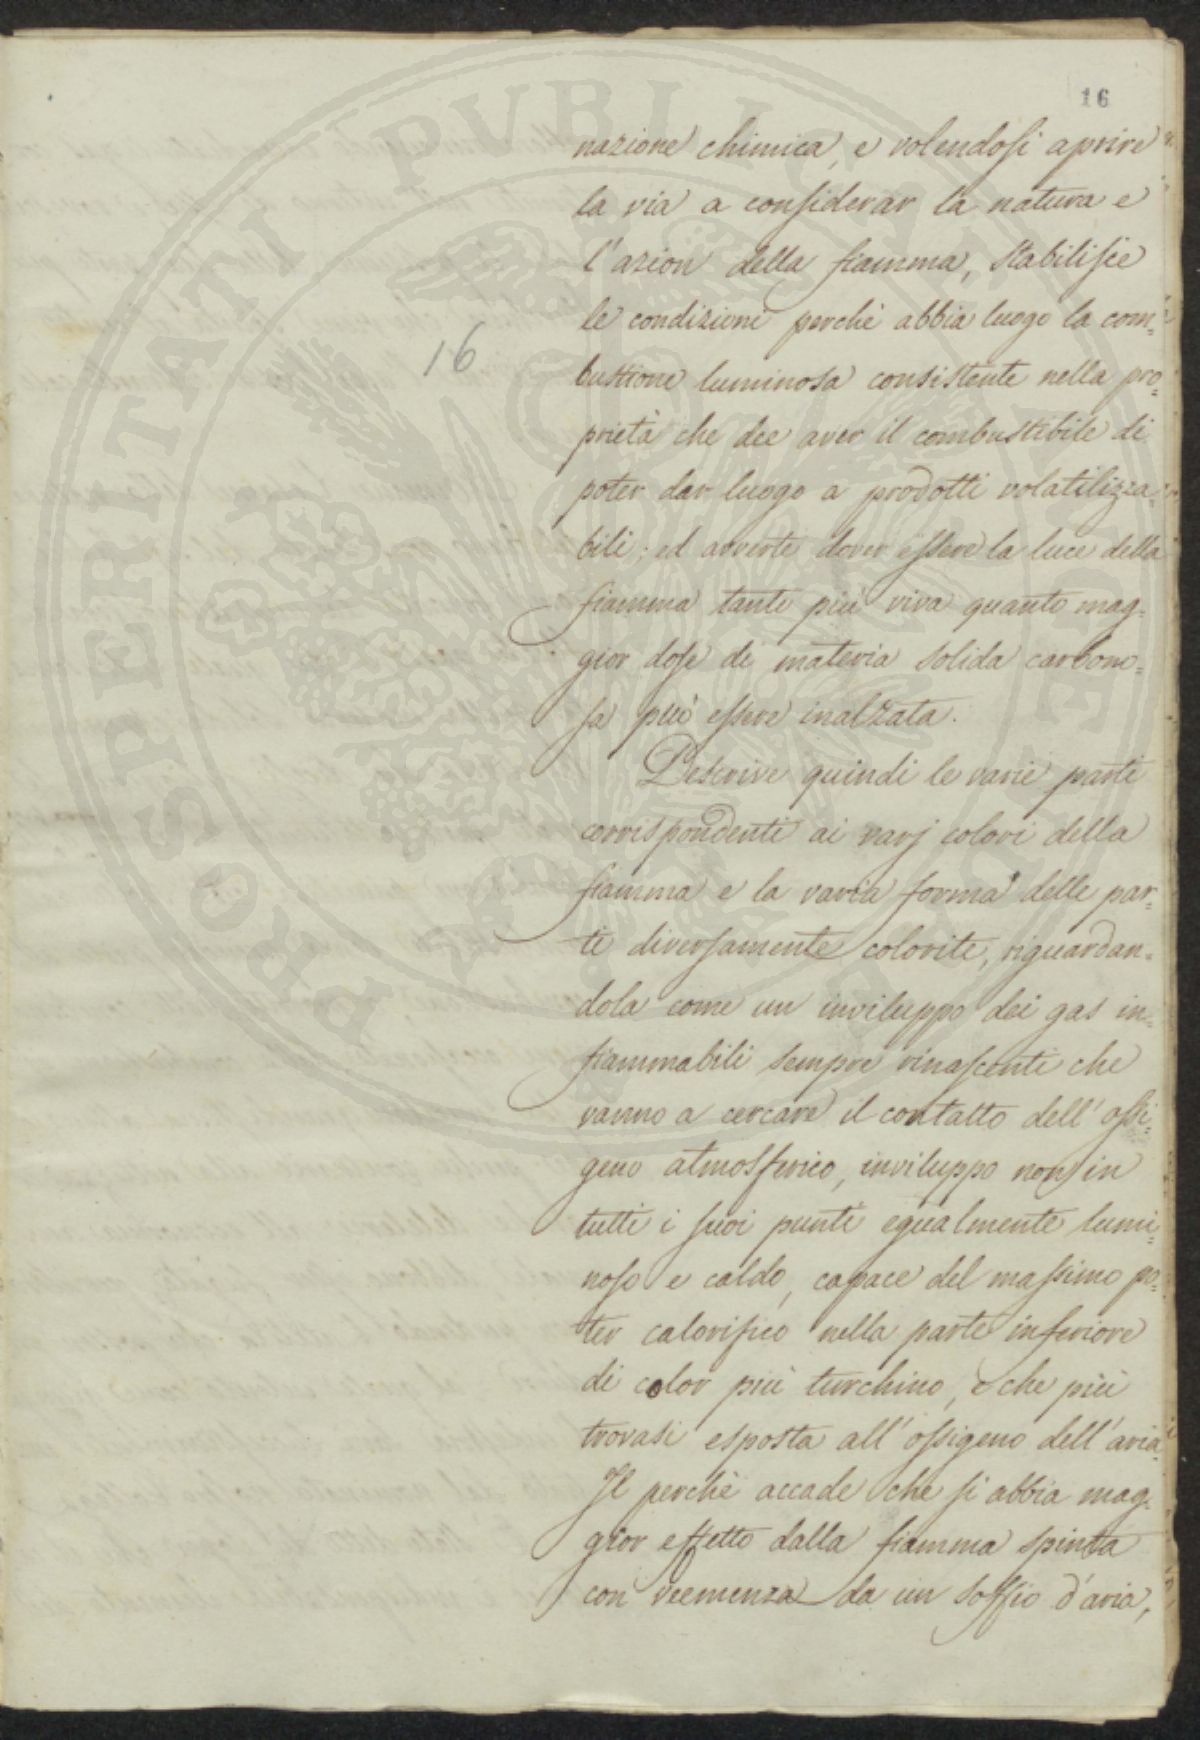 16
nazione chimica, e volendosi aprire
la via a considerar la natura e
l'azion della fiamma, stabilisce
le condizioni perchè abbia luogo la com=
bustione luminosa consistente nella pro=
prietà che dee aver il combustibile di
poter dar luogo a prodotti volatilizza=
bili; ed avverte dover essere la luce della
fiamma tanto più viva quanto mag=
gior dose di materia solida carbono=
sa può essere inalzata.
Descrive quindi le varie parti
corrispondenti ai varj colori della
fiamma e la varia forma delle par=
ti diversamente colorite, riguardan=
dola come un inviluppo dei gas in=
fiammabili sempre rinascenti che
vanno a cercare il contatto dell'ossi=
geno atmosferico, inviluppo non in
tutti i suoi punti egualmente lumi=
noso e caldo, capace del massimo po=
ter calorifico nella parte inferiore
di color più turchino, e che più
trovasi esposta all'ossigeno dell'aria.
Il perchè accade che si abbia mag=
gior effetto dalla fiamma spinta
con veemenza da un soffio d'aria,
16
PROSPERITATI PVBLICAE AVGENDAE